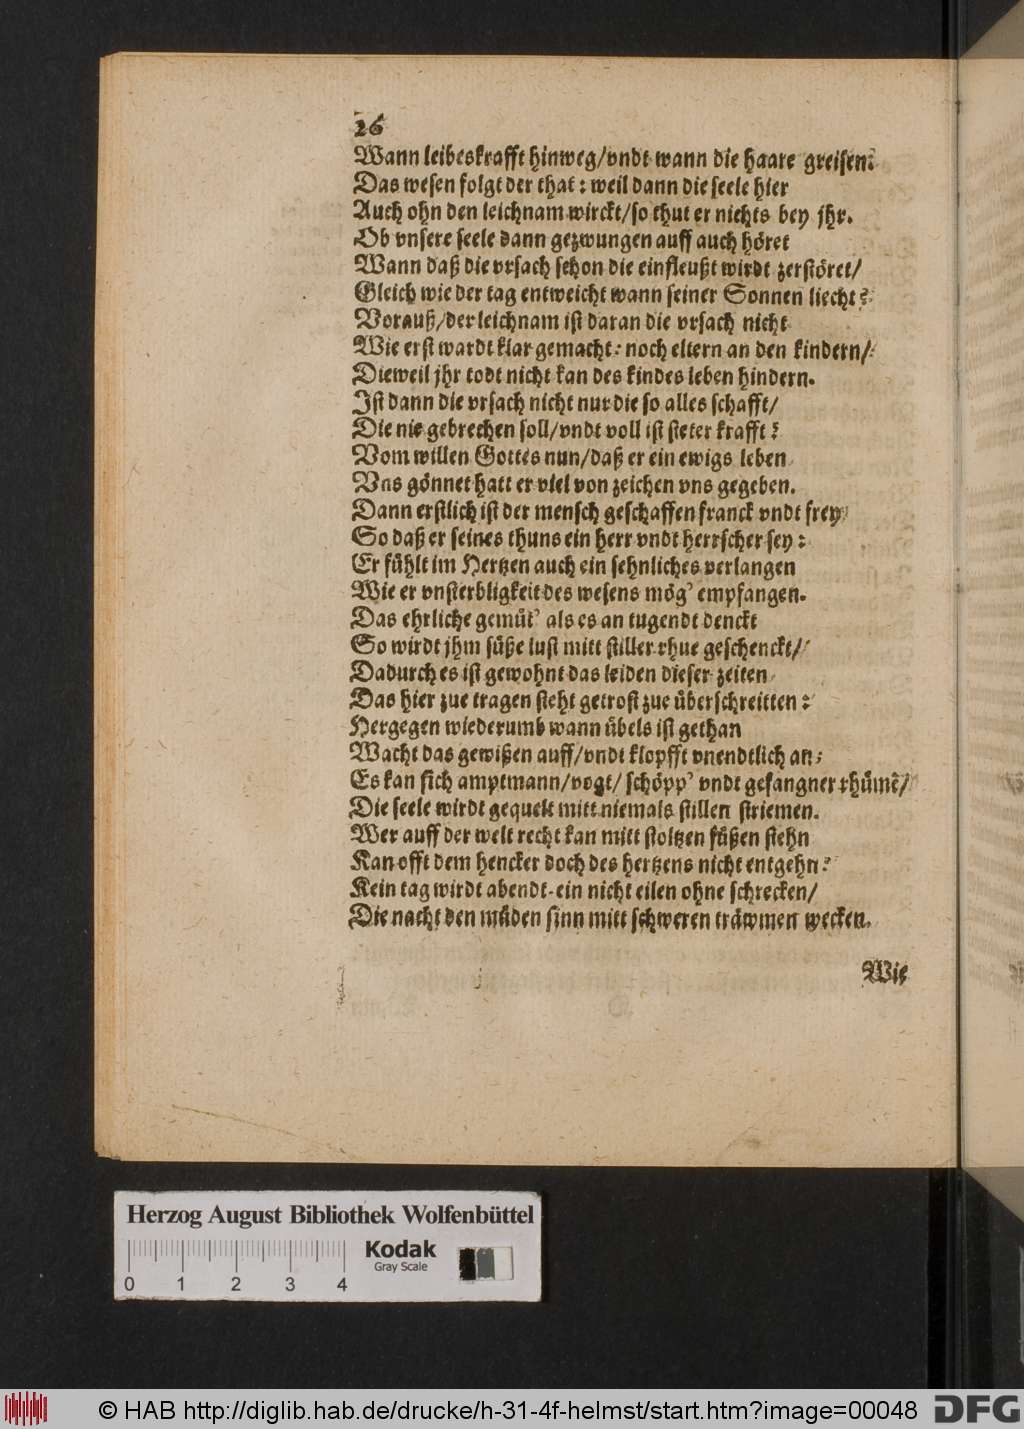 26
Wann leibeskrafft hinweg/vndt wann die haare greisen:
Das wesen folgt der that: weil dann die seele hier
Auch ohn den leichnam wirckt/so thut er nichts bey jhr.
Ob vnsere seele dann gezwungen auff auch höret
Wann daß die vrsach schon die einfleußt wirdt zerstöret/
Gleich wie der tag entweicht wann seiner Sonnen liecht?
Vorauß/der leichnam ist daran die vrsach nicht
Wie erst wardt klar gemacht: noch eltern an den kindern/
Dieweil jhr todt nicht kan des kindes leben hindern.
Ist dann die vrsach nicht nur die so alles schafft/
Die nie gebrechen soll/vndt voll ist steter krafft?
Vom willen Gottes nun/daß er ein ewigs leben
Vns gönnet hatt er viel von zeichen vns gegeben.
Dann erstlich ist der mensch geschaffen franck vndt frey
So daß er seines thuns ein herr vndt herrscher sey:
Er fühlt im Hertzen auch ein sehnliches verlangen
Wie er vnsterbligkeit des wesens mög' empfangen.
Das ehrliche gemüt' als es an tugendt denckt
So wirdt jhm süße lust mitt stiller rhue geschenckt/
Dadurch es ist gewohnt das leiden dieser zeiten
Das hier zue tragen steht getrost zue überschreitten:
Hergegen wiederumb wann übels ist gethan
Wacht das gewißen auff/vndt klopfft vnendtlich an;
Es kan sich amptmann/vogt/ schöpp' vndt gefangner rhümē/
Die seele wirdt gequelt mitt niemals stillen striemen.
Wer auff der welt recht kan mitt stoltzen füßen stehn
Kan offt dem hencker doch des hertzens nicht entgehn:
Kein tag wirdt abendt-ein nicht eilen ohne schrecken/
Die nacht den müden sinn mitt schweren träwmen wecken.
Wie
Herzog August Bibliothek Wolfenbüttel
Kodak
Gray Scale
0 1 2 3 4
© HAB http://diglib.hab.de/drucke/h-31-4f-helmst/start.htm?image=00048
DFG